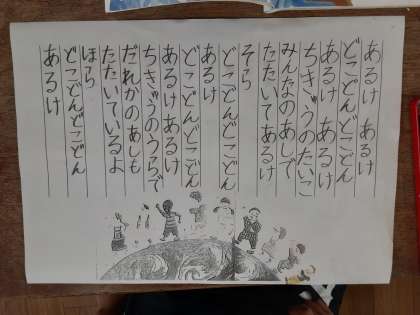 あるけ あるけ
どこどんどこどん
あるけ あるけ
ちきゅうのたいこ
みんなのあしで
たたいてあるけ
そら
どこどんどこどん
あるけ
どこどんどこどん
あるけ あるけ
ちきゅうのうらで
だれかのあしも
たたいているよ
ほら
どこどんどこどん
あるけ